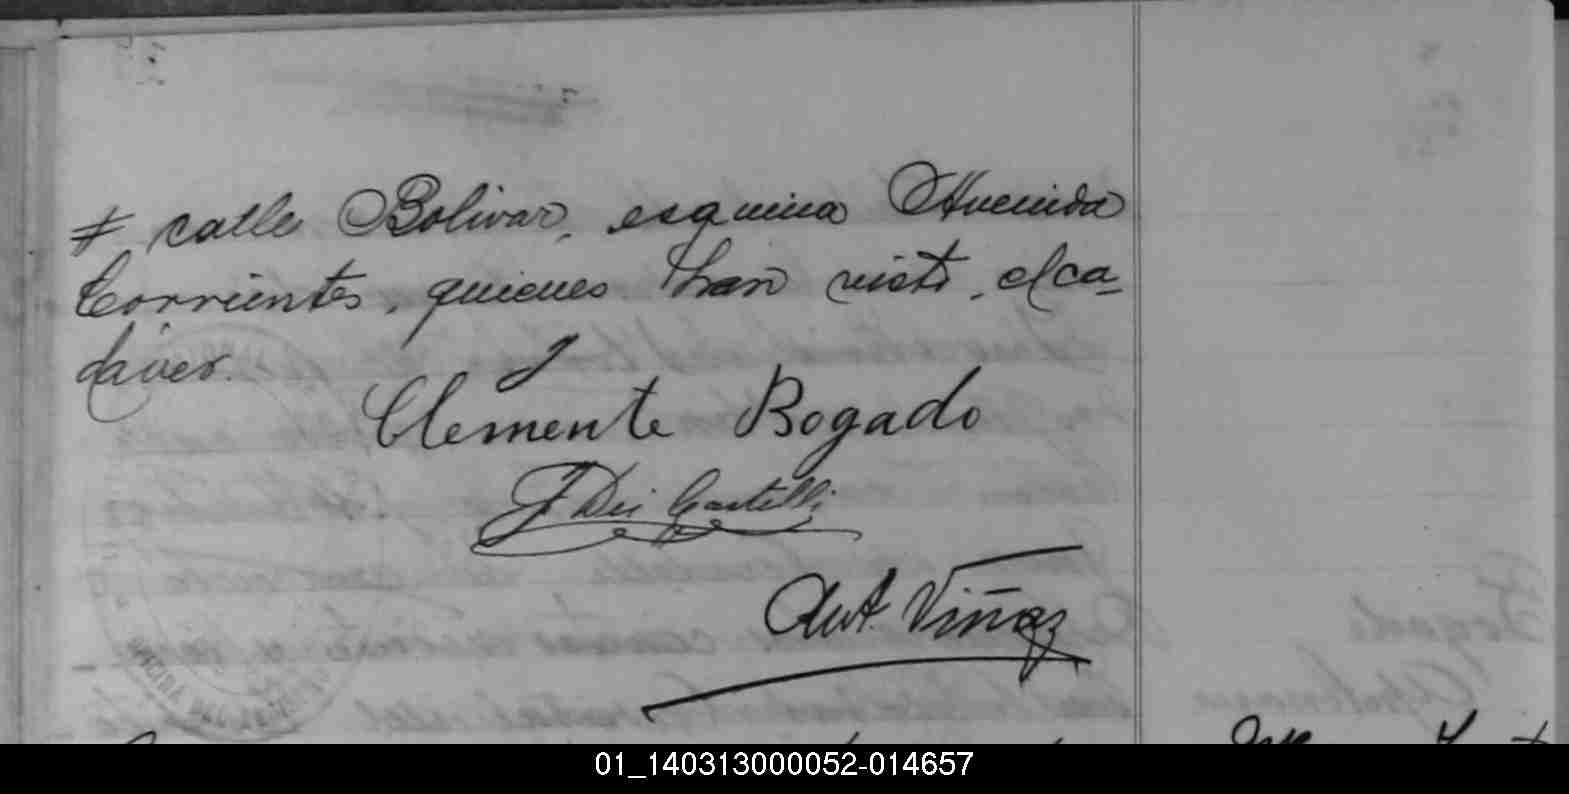 # calle Bolivar, esquina Avenida
Corrientes, quienes han visto, el ca-
daver.
Clemente Bogado
J Dei Castelli
Ant. Viñaz
01_140313000052-014657